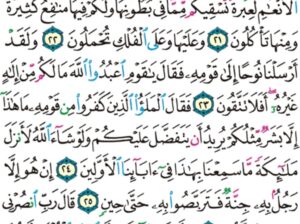 ٱلْأَنْعَٰمِ لَعِبْرَةً نُّسْقِيكُم مِّمَّا فِى بُطُونِهَا وَلَكُمْ فِيهَا مَنَٰفِعُ كَثِيرَةٌ
وَمِنْهَا تَأْكُلُونَ ٢١ وَعَلَيْهَا وَعَلَى ٱلْفُلْكِ تُحْمَلُونَ ٢٢ وَلَقَدْ
أَرْسَلْنَا نُوحًا إِلَىٰ قَوْمِهِۦ فَقَالَ يَٰقَوْمِ ٱعْبُدُوا۟ ٱللَّهَ مَا لَكُم مِّنْ إِلَٰهٍ
غَيْرُهُۥٓ أَفَلَا تَتَّقُونَ ٢٣ فَقَالَ ٱلْمَلَؤُا۟ ٱلَّذِينَ كَفَرُوا۟ مِن قَوْمِهِۦ مَا هَٰذَآ
إِلَّا بَشَرٌ مِّثْلُكُمْ يُرِيدُ أَن يَتَفَضَّلَ عَلَيْكُمْ وَلَوْ شَآءَ ٱللَّهُ لَأَنزَلَ
مَلَٰٓئِكَةً مَّا سَمِعْنَا بِهَٰذَا فِىٓ ءَابَآئِنَا ٱلْأَوَّلِينَ ٢٤ إِنْ هُوَ إِلَّا
رَجُلٌۢ بِهِۦ جِنَّةٌ فَتَرَبَّصُوا۟ بِهِۦ حَتَّىٰ حِينٍ ٢٥ قَالَ رَبِّ ٱنصُرْنِى